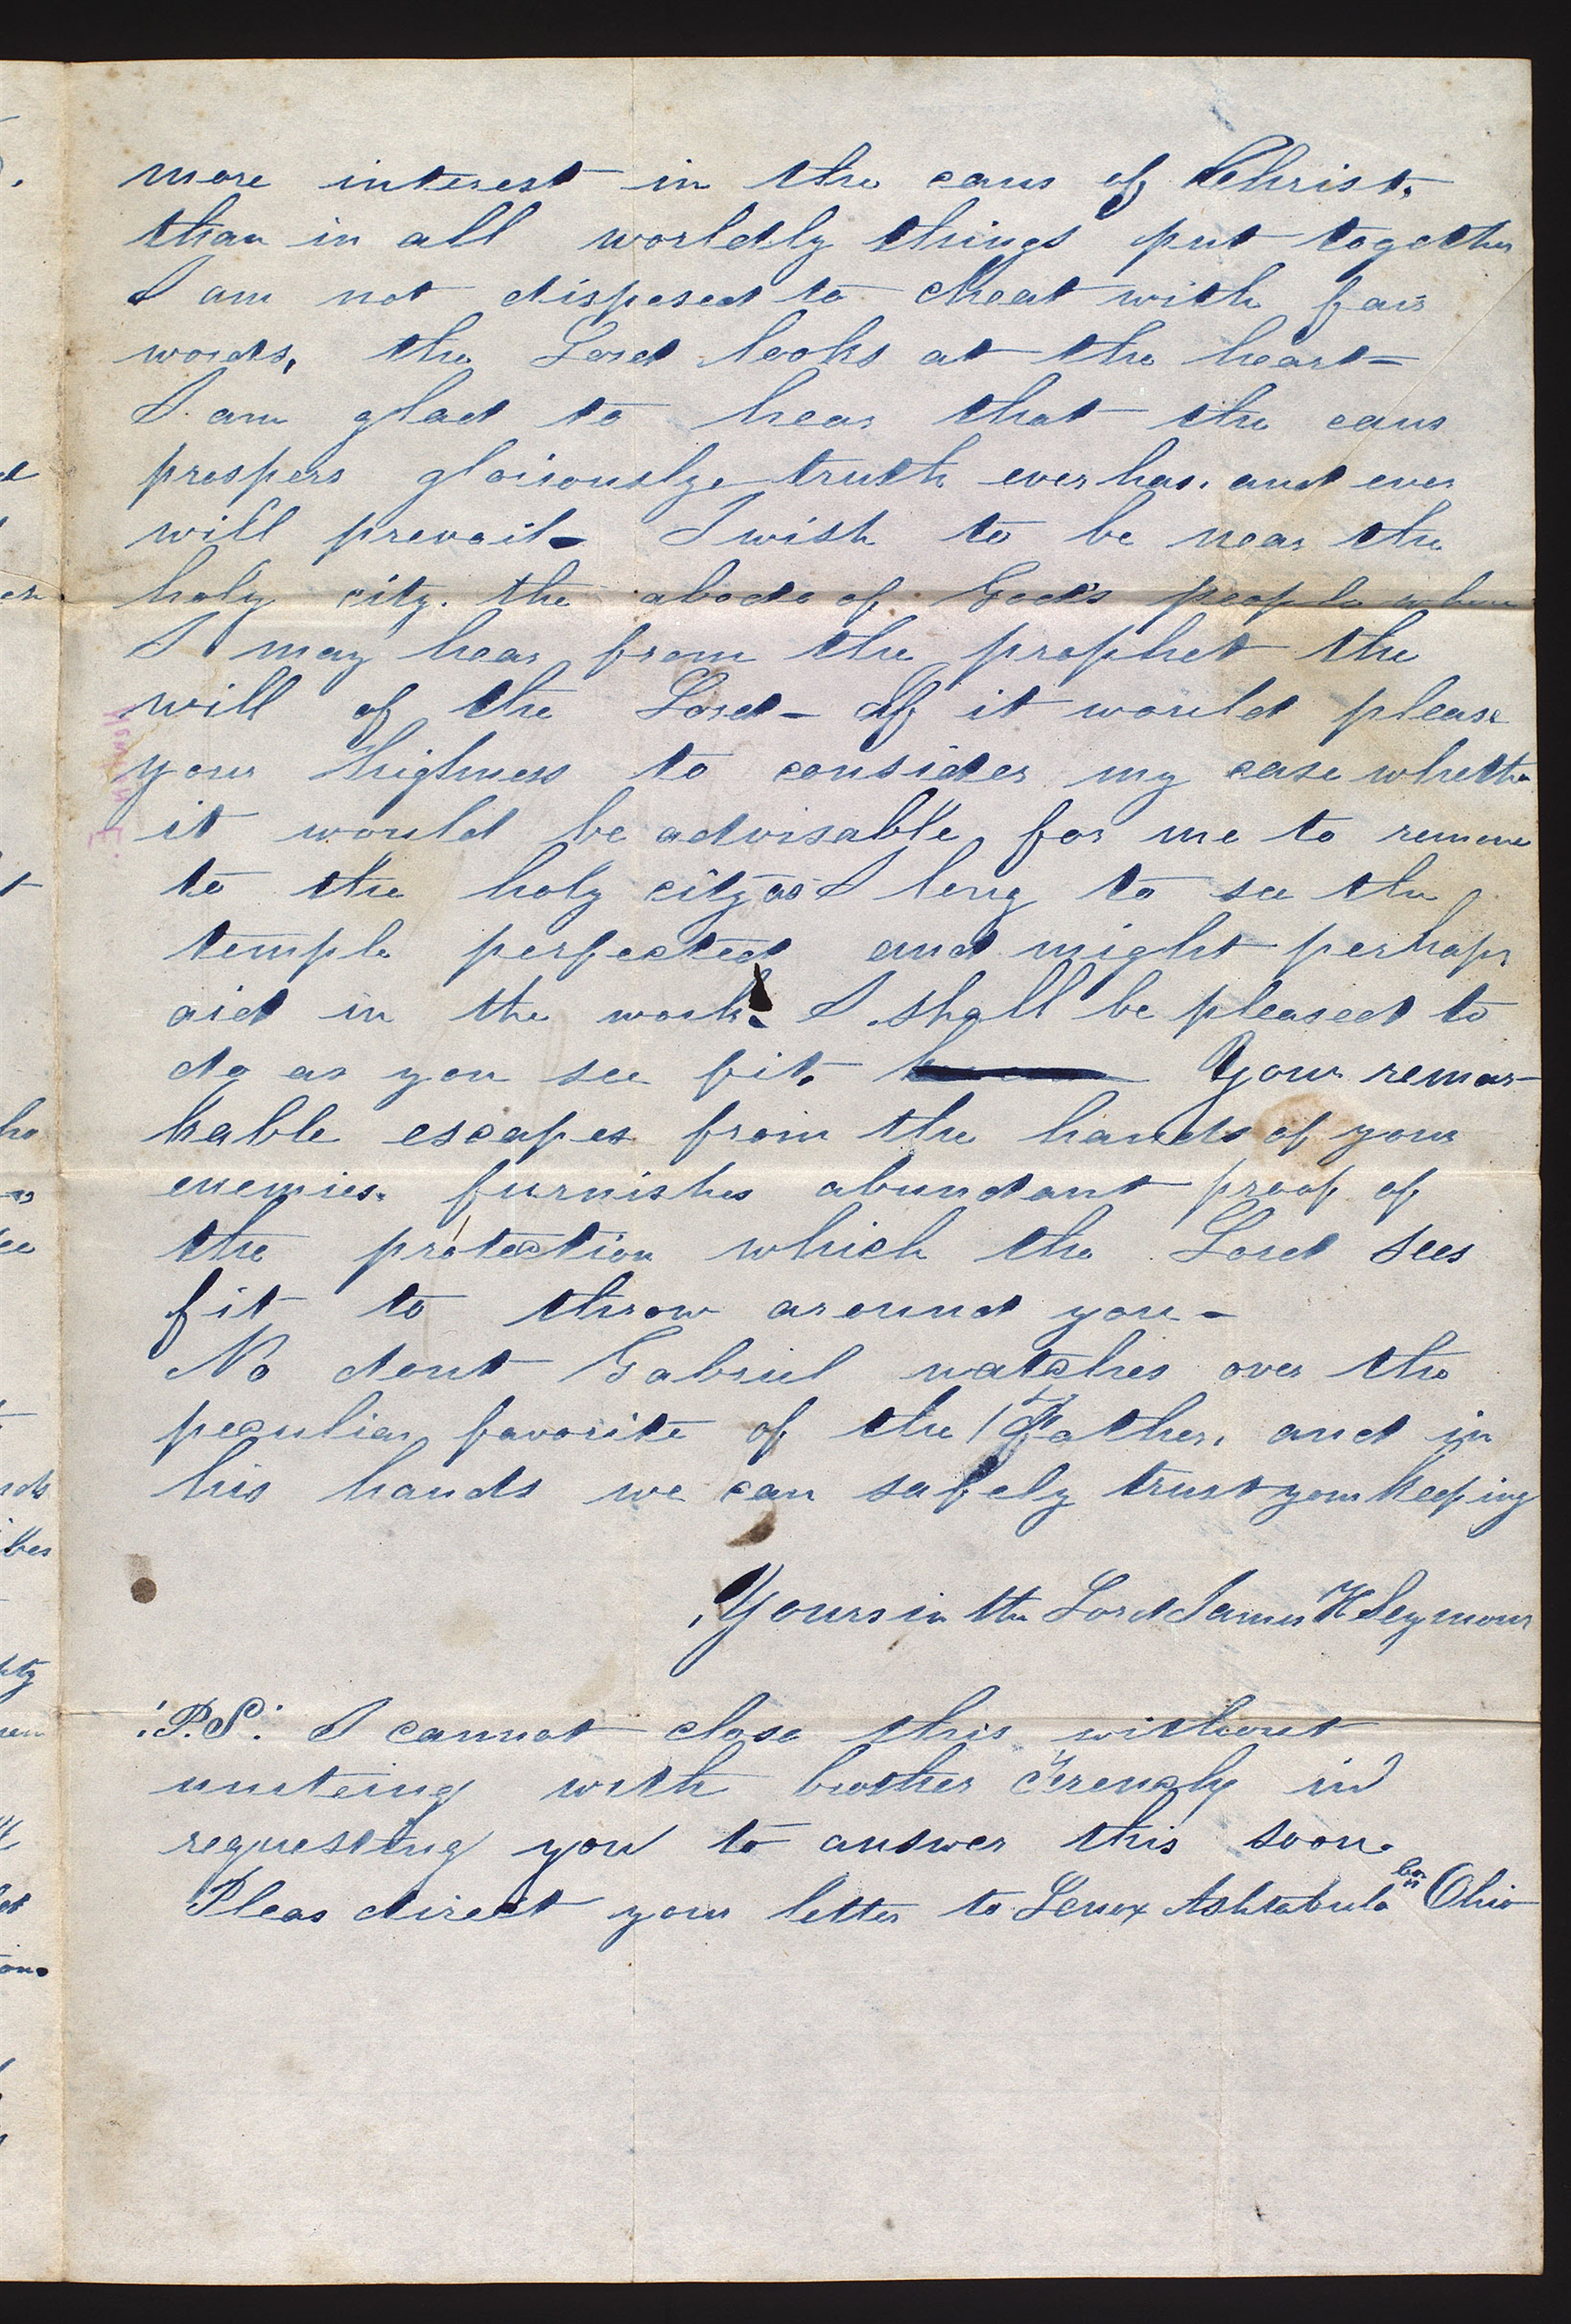 more interest in the caus of Christ.
than in all worldly things put together
I am not disposed to cheat with fair
words, the Lord looks at the heart-
I am glad to hear that the caus
prospers gloriously truth ever has, and ever
will prevail- I wish to be near the
holy city. the abode of Gods people where
I may hear from the prophet the
will of the Lord- If it would please
your highness to consider my case whether
it would be advisable, for me to remove
to the holy city as I long to see the
temple perfected and might perhaps
aid in the work. I shall be pleased to
do as you see fit. Your remar-
kable escapes from the hands of your
enemies. furnishes abundant proof of
the protection which the Lord sees
fit to throw around you-
No dout Gabriel watches over the
peculiar favorite of the Father, and in
his hands we can safely trust your keeping
Yours in the Lord James H Seymour
P.S. I cannot close this without
uniteing with brother in
requesting you to answer this soon.
Pleas direct your letter to Lenox Ashtabula Co Ohio